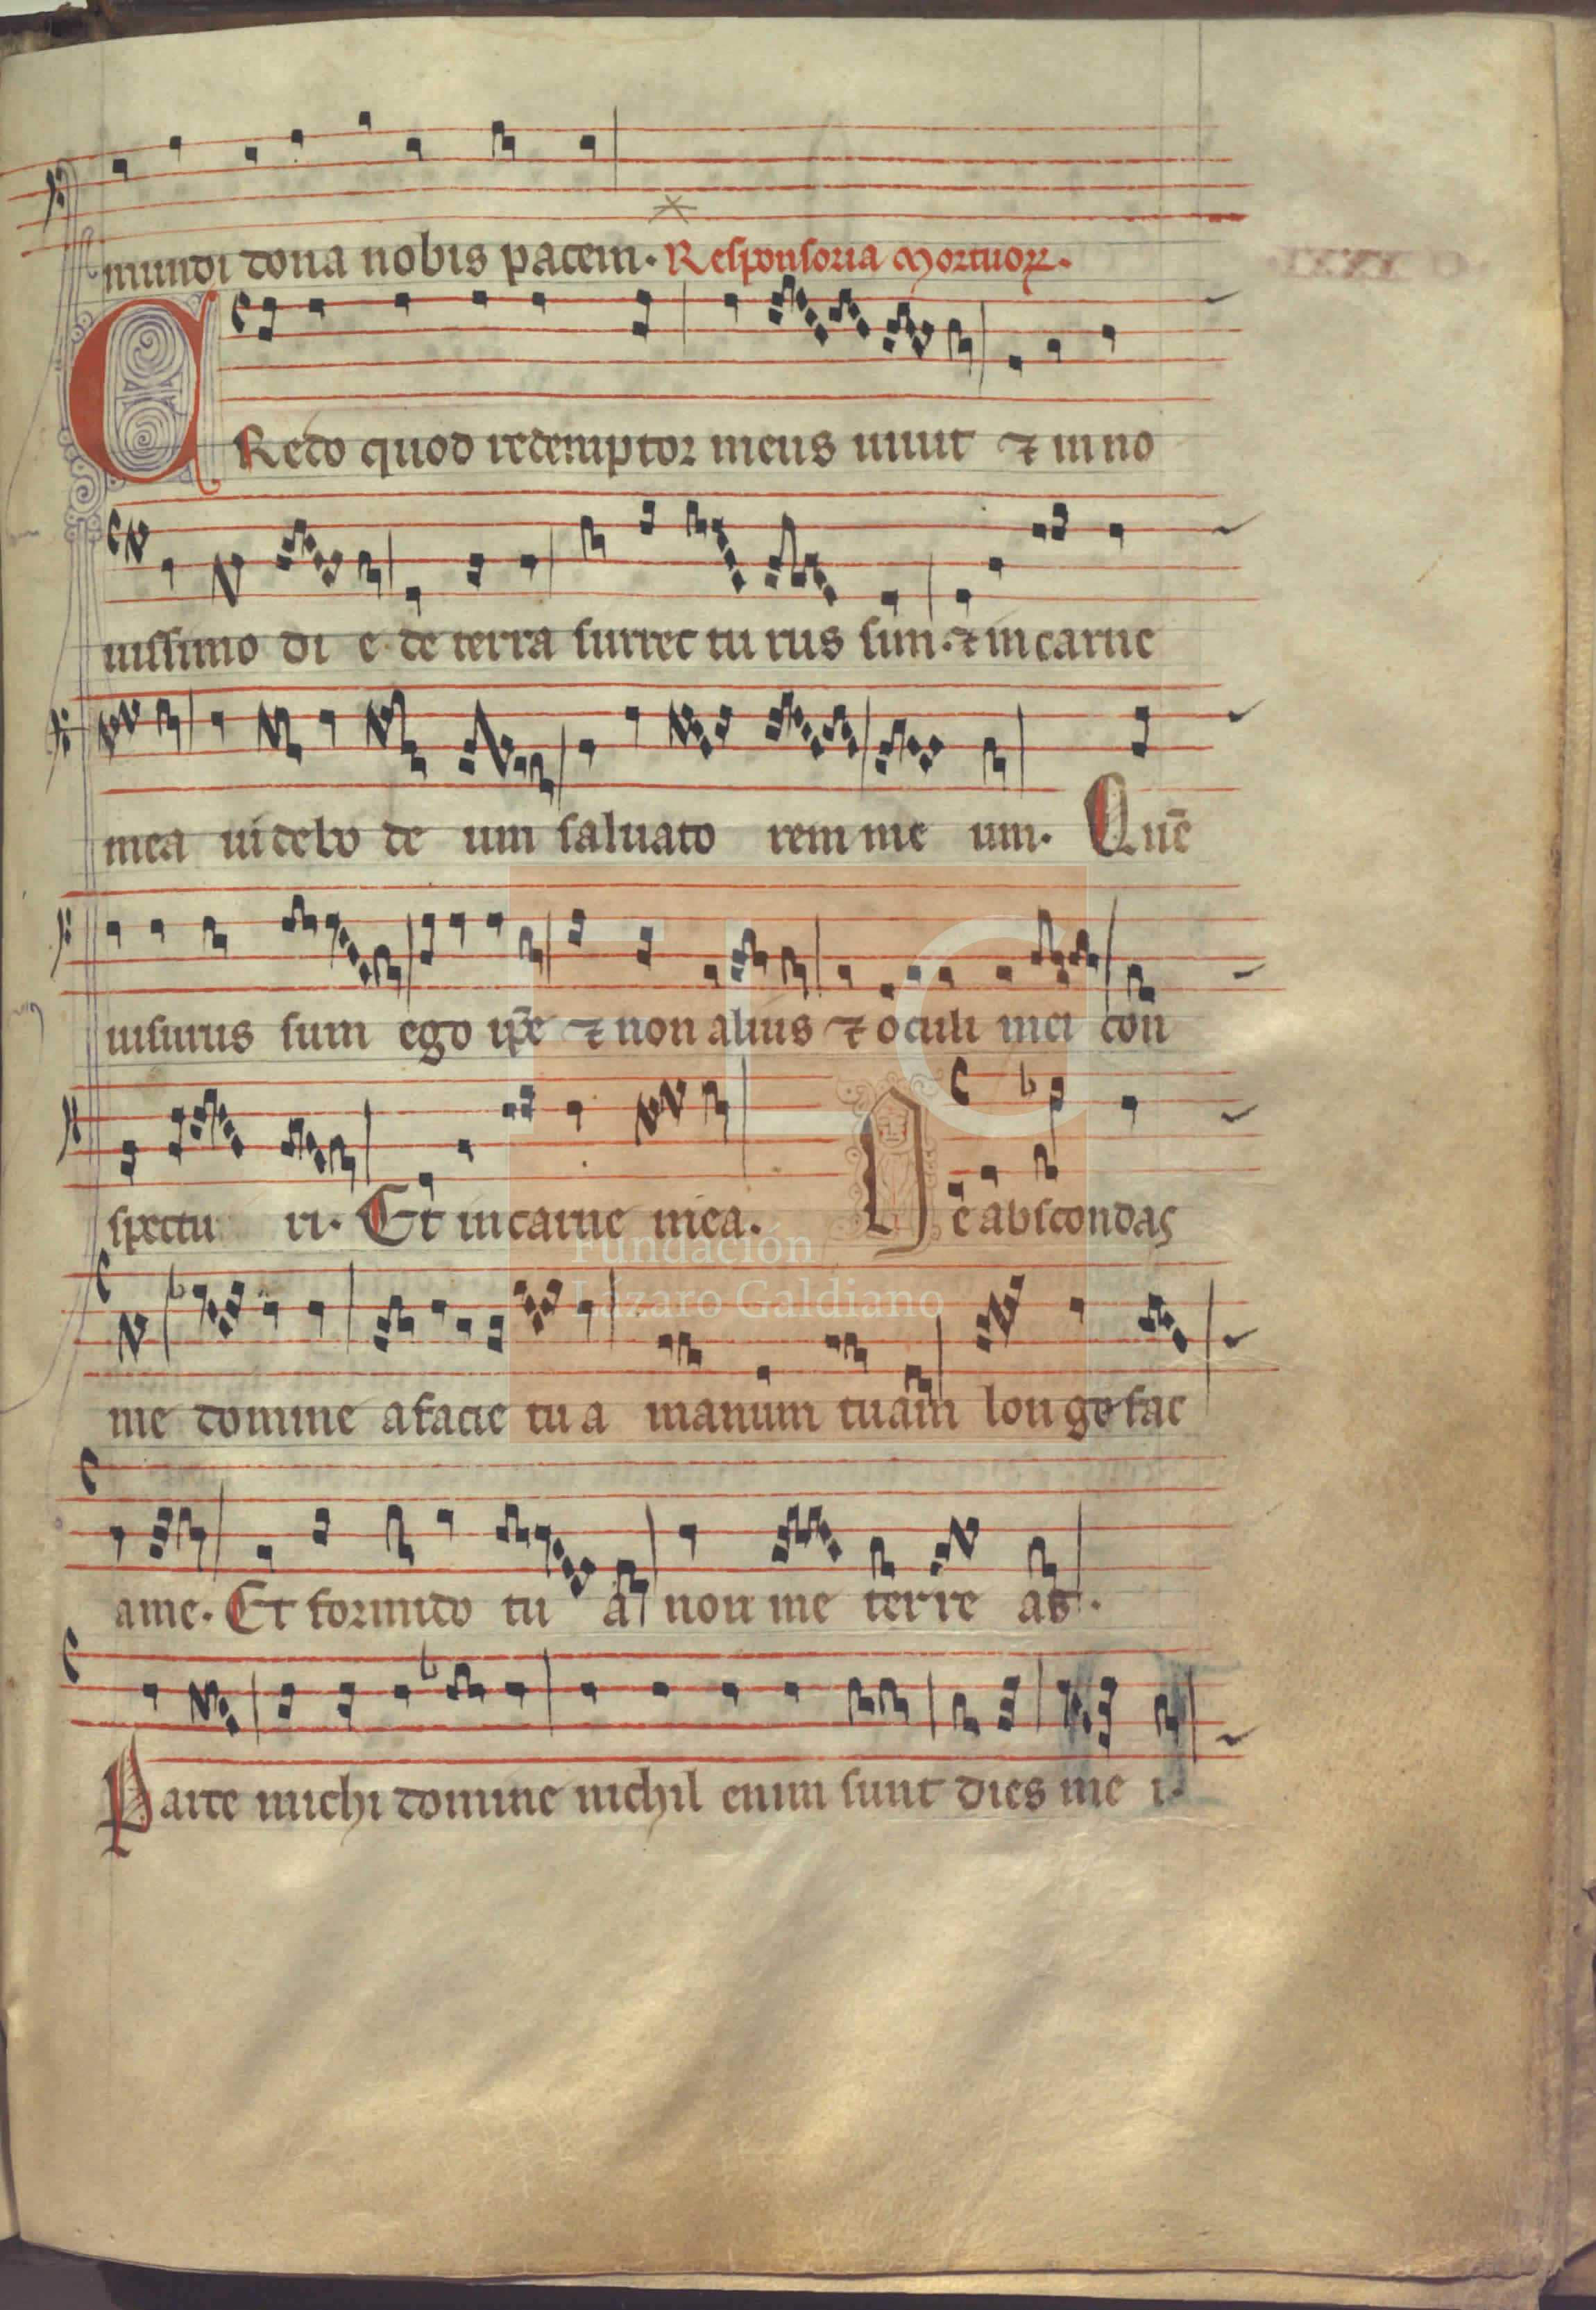 mundi dona nobis pacem. Responsoria Mortuoꝝ.
CRedo quod redemptor meus uiuit ⁊ in no
uissimo di e de terra surrec tu rus sum. ⁊ in carne
mea uidebo de um saluato rem me um. Quē
uisurus sum ego ip̄e ⁊ non alius ⁊ oculi mei con
spectu ri. Et in carne mea. Ne abscondas
me domine a facie tu a manum tuam longe fac
a me. Et formido tu a non me terre at.
Parce michi domine nichil enim sunt dies me i.
FLG
Fundación
Lázaro Galdiano